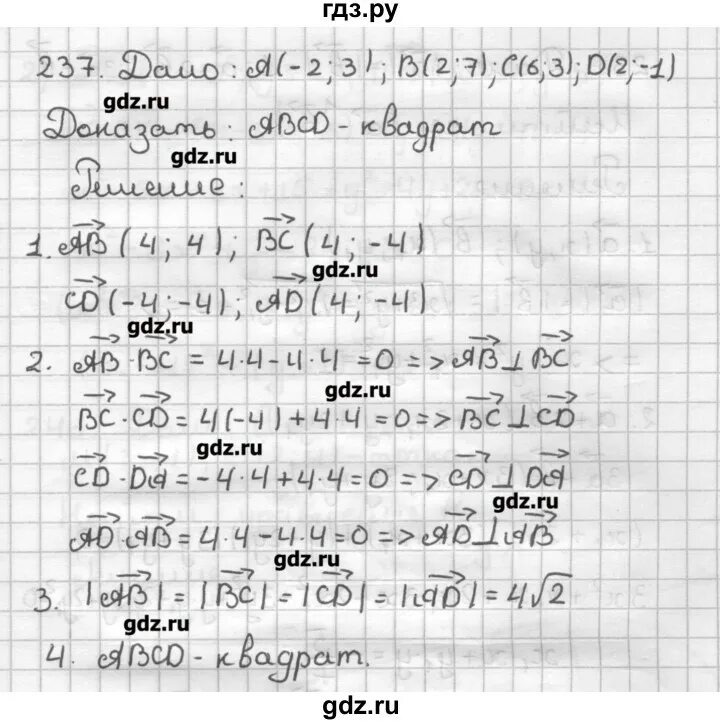 гдз.ру
237. Дано: A(-2; 3); B(2; 7); C(6; 3); D(2; -1)
gdz.ru
Доказать: ABCD - квадрат
gdz.ru
Решение:
1. AB (4; 4); BC (4; -4)
gdz.ru
CD (-4; -4); AD (4; -4)
gdz.ru
2. AB · BC = 4·4 - 4·4 = 0 => AB ⊥ BC
gdz.ru
BC · CD = 4(-4) + 4·4 = 0 => BC ⊥ CD
gdz.ru
CD · DA = -4·4 + 4·4 = 0 => CD ⊥ DA
gdz.ru
AD · AB = 4·4 - 4·4 = 0 => AD ⊥ AB
gdz.ru
3. |AB| = |BC| = |CD| = |AD| = 4√2
gdz.ru
4. ABCD - квадрат.
gdz.ru